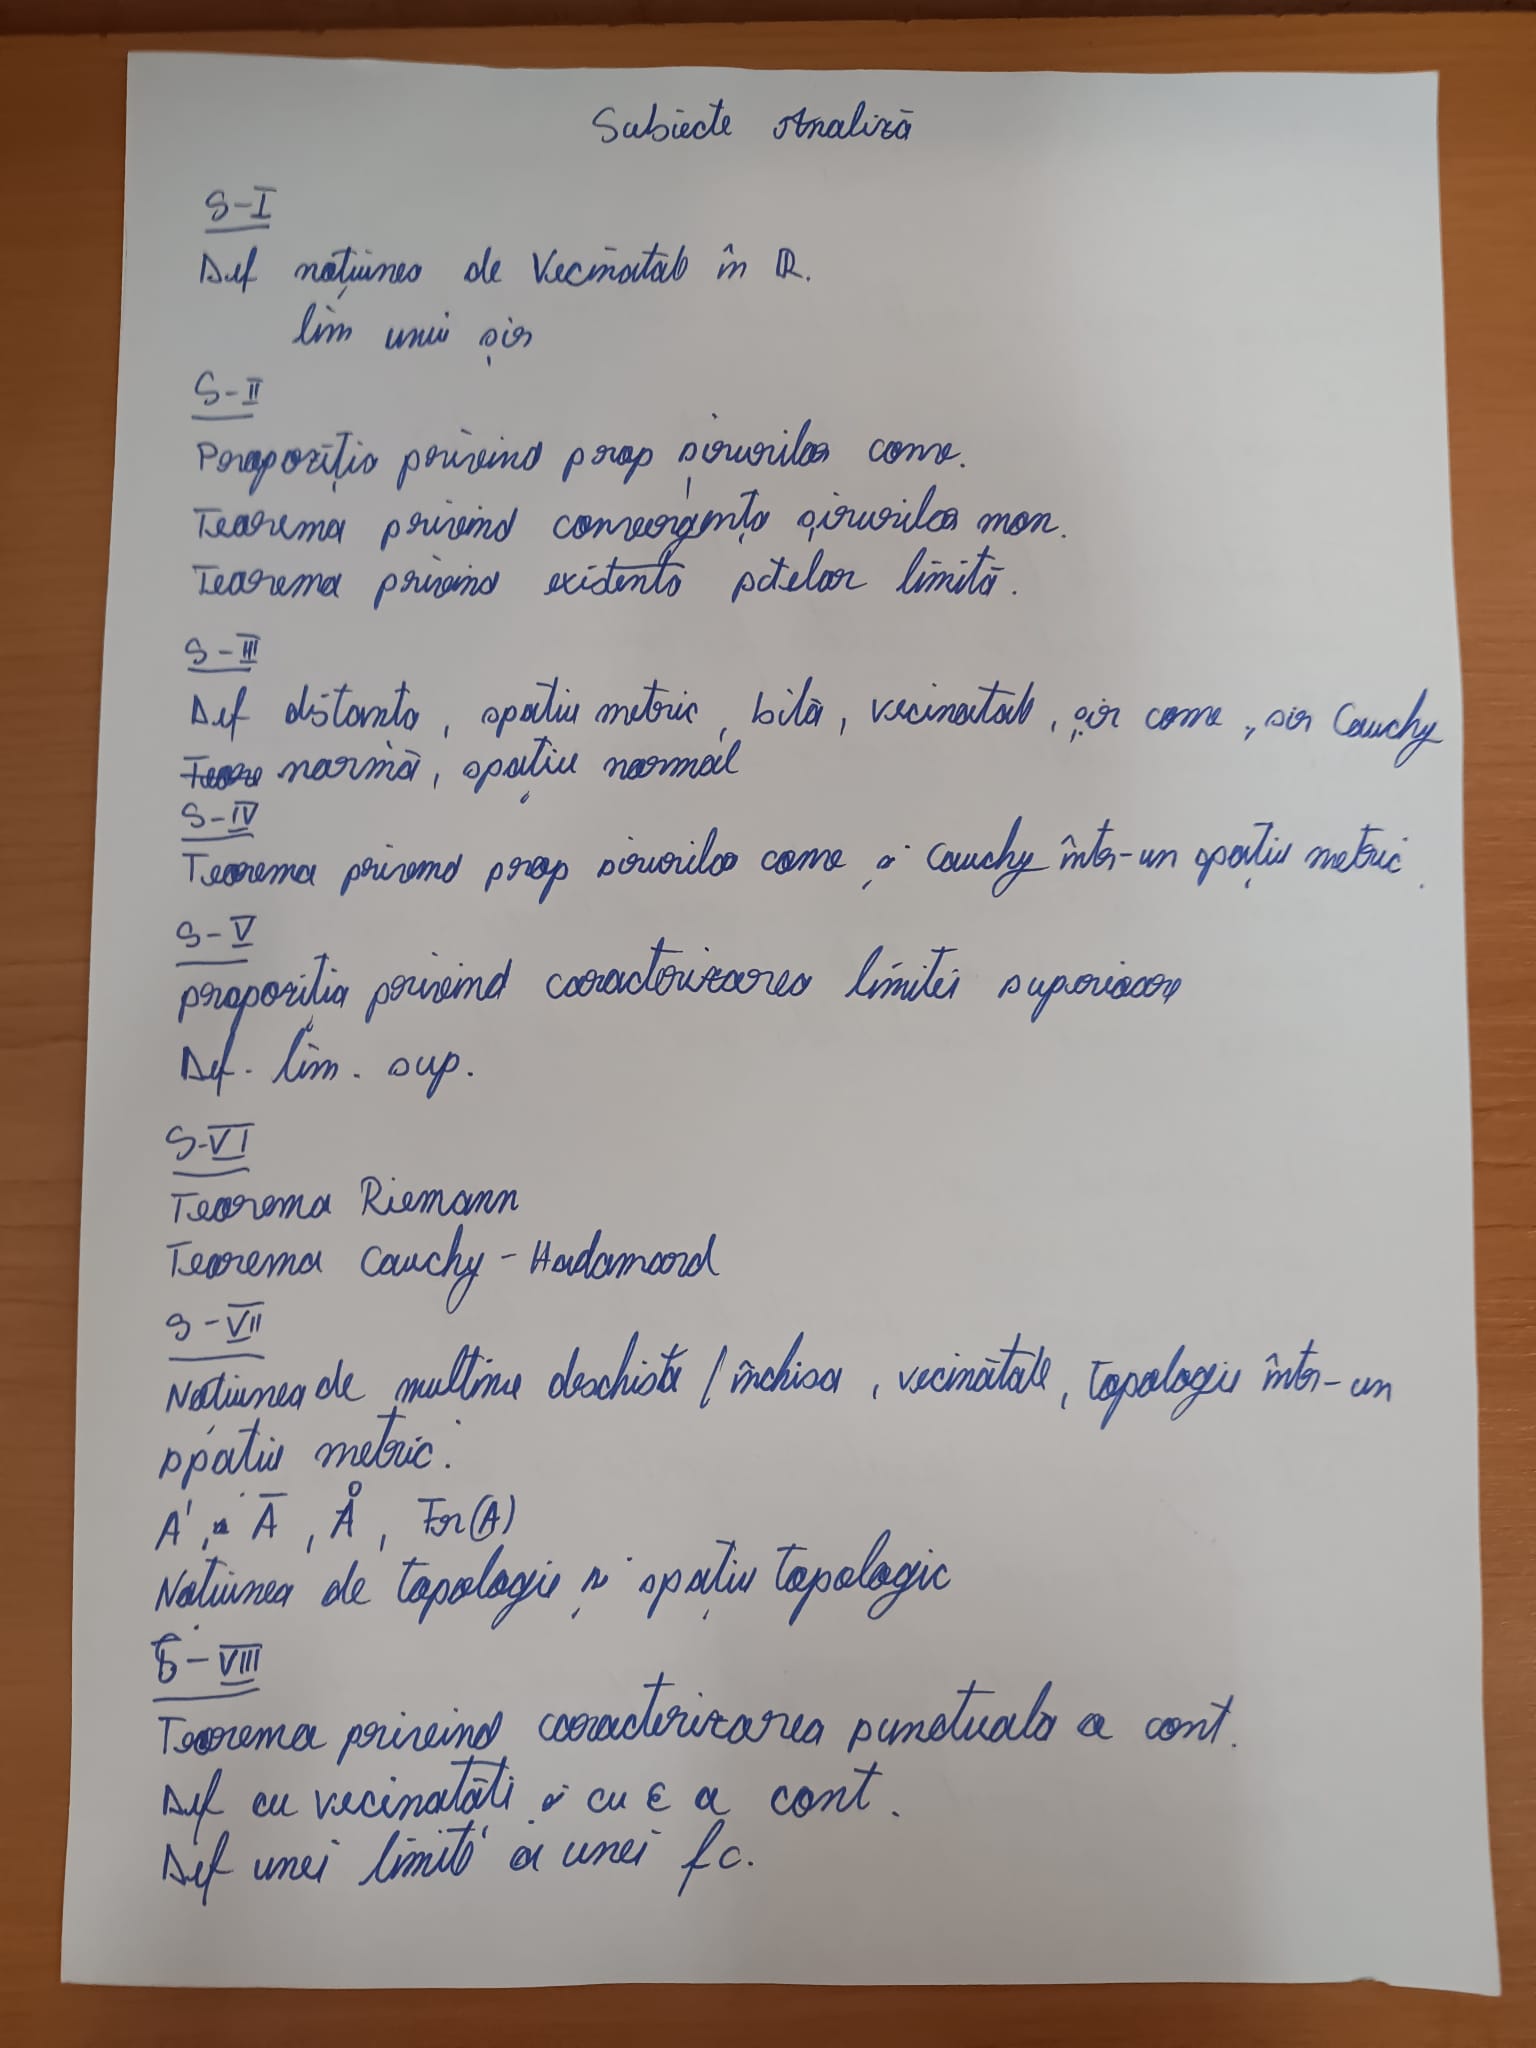 Subiecte Analiză
S-I
Def noțiunea de Vecinătate în ℝ.
lim unui șir
S-II
Propoziția privind prop șirurilor conv.
Teorema privind convergența șirurilor mon.
Teorema privind existenta pctelor limită.
S-III
Def distanta, spatiu metric, bilă, vecinatate, șir conv, sir Cauchy
normă, spațiu normal
S-IV
Teorema privind prop sirurilor conv și Cauchy într-un spațiu metric.
S-V
propoziția privind caracterizarea limitei superioare
Def. lim. sup.
S-VI
Teorema Riemann
Teorema Cauchy-Hadamard
S-VII
Notiunea de multime deschisă / închisa, vecinătate, topologie într-un
spatiu metric.
A', Ā, Å, Fr(A)
Notiunea de topologie și spațiu topologic
S-VIII
Teorema privind caracterizarea punctuala a cont.
Def cu vecinatăți și cu ε a cont.
Def unei limite a unei fc.